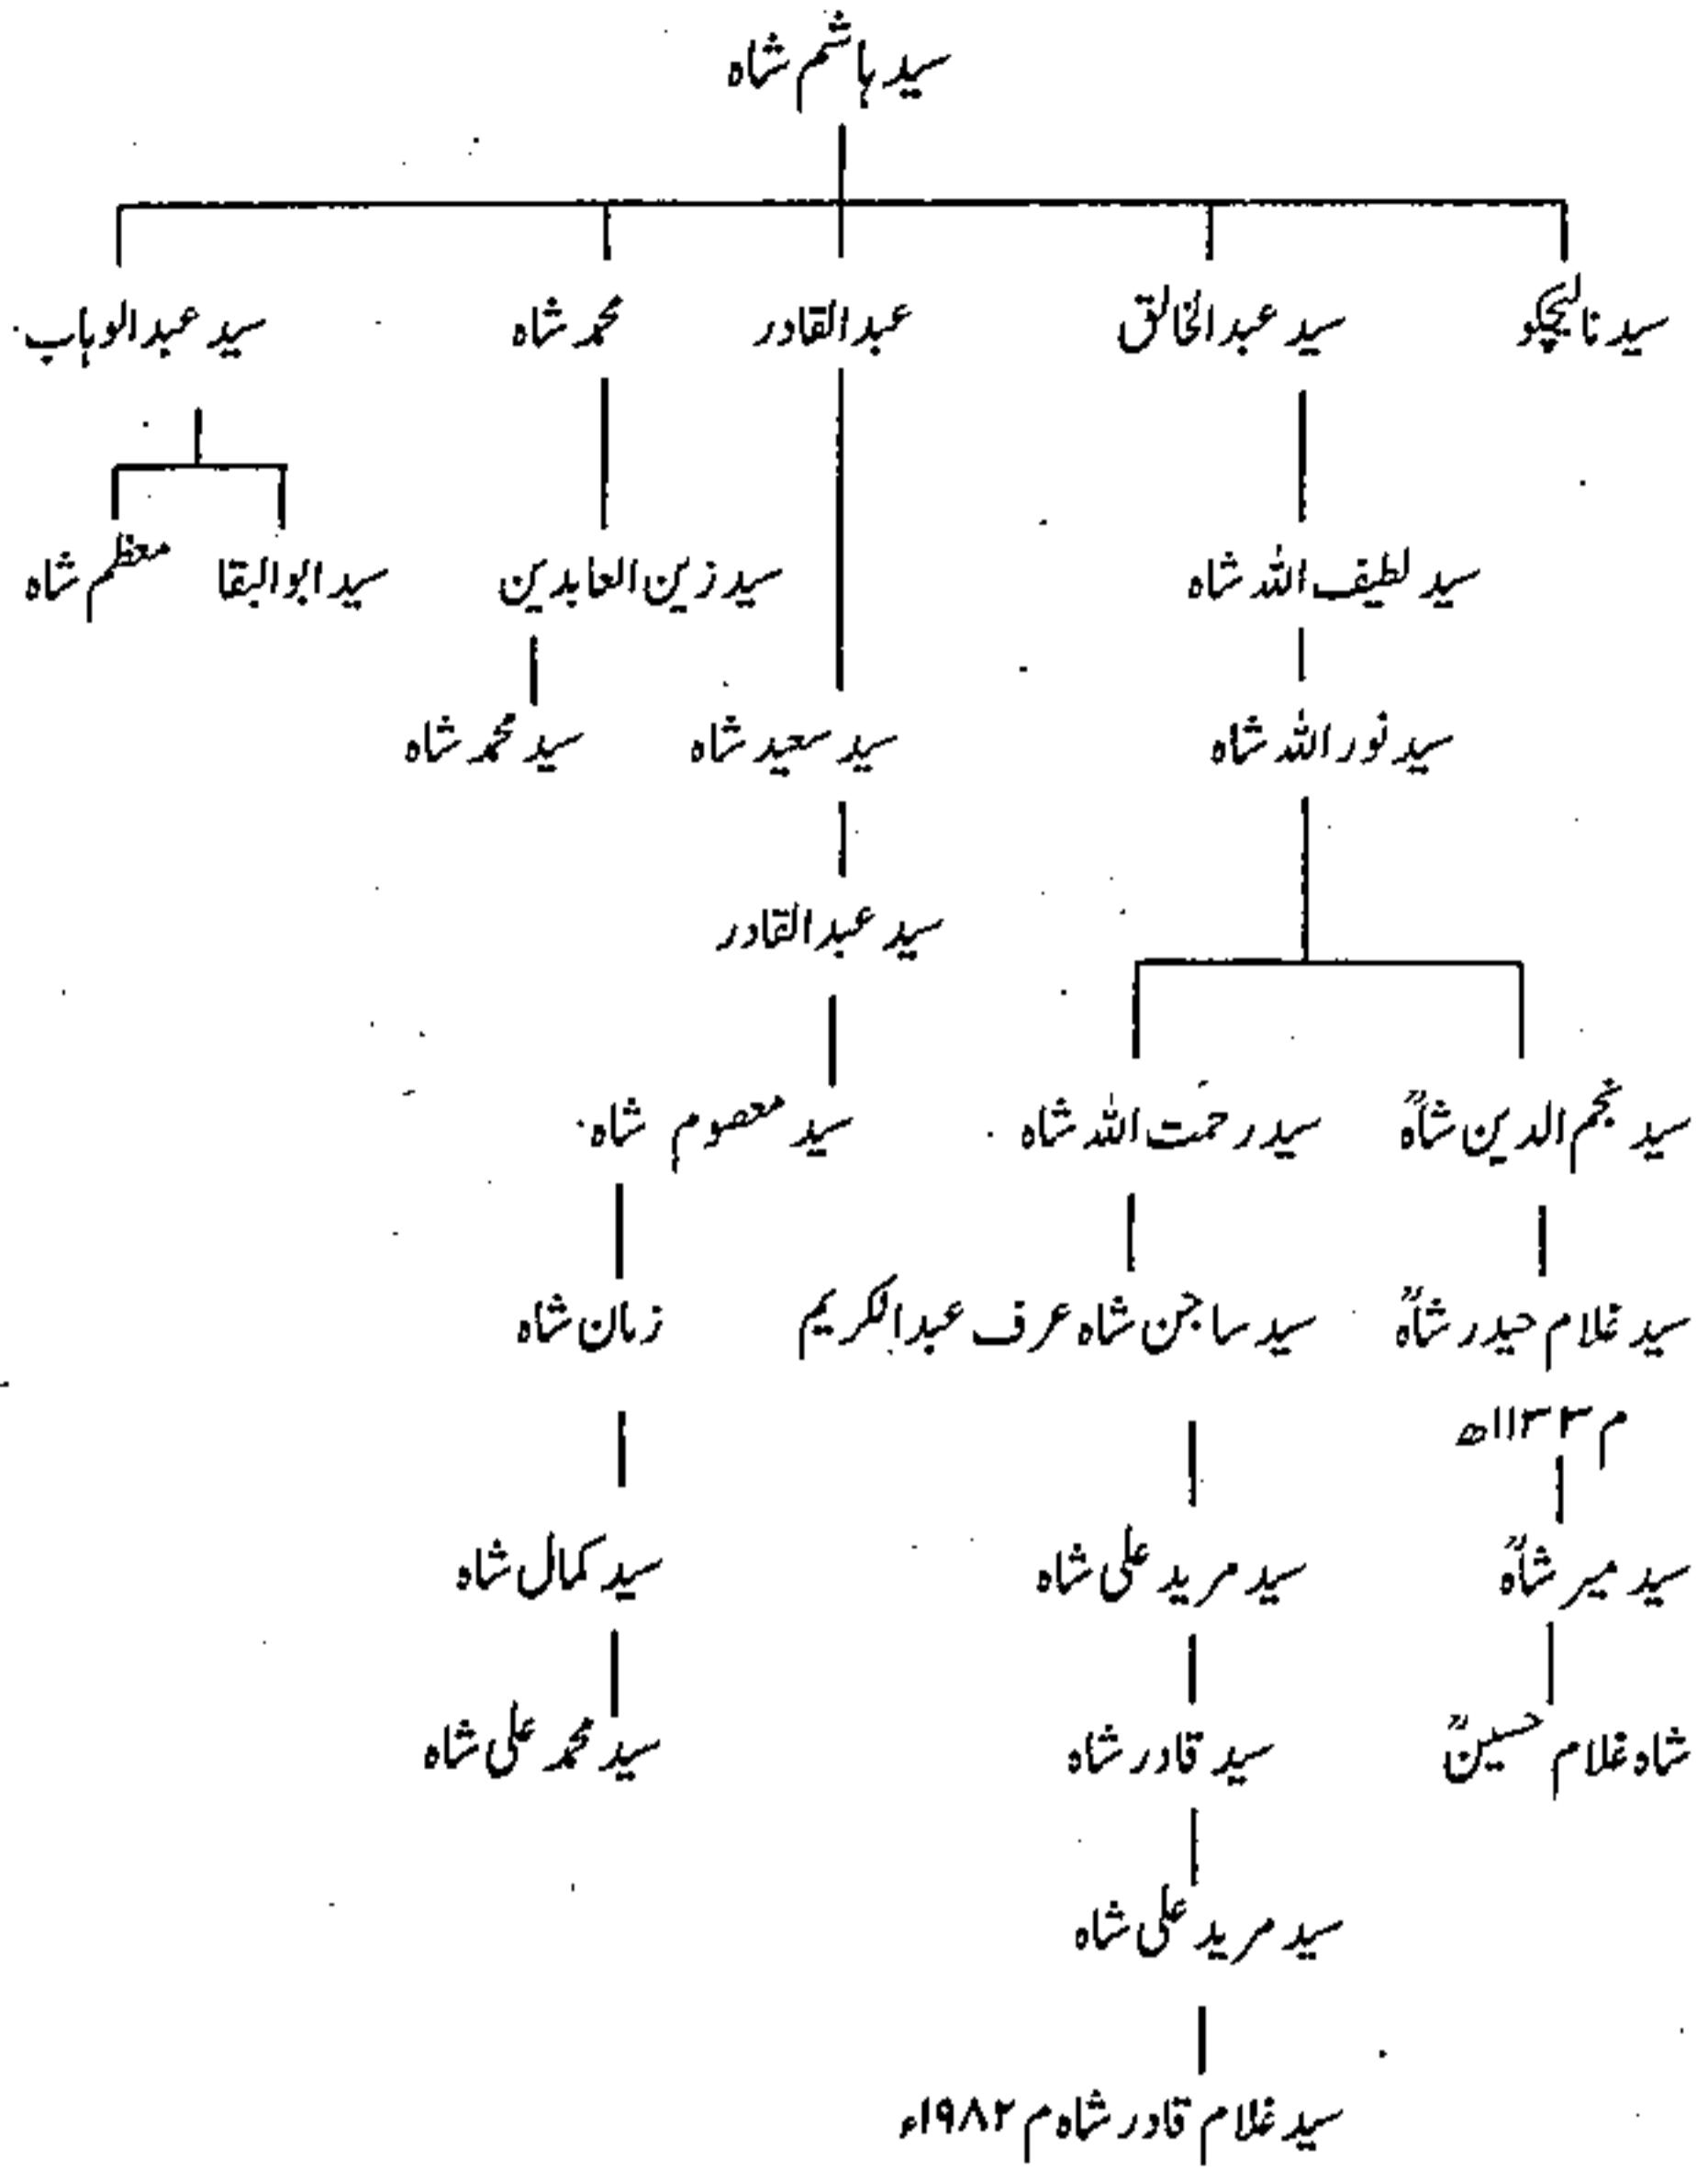 سید ہاشم شاہ
سید عبدالخالق
عبدالقادر
محمد شاہ
سید عبدالوہاب
سید لطیف اللہ شاہ
سید زین العابدین
سید ابوالبقا
معظم شاہ
سید نور اللہ شاہ
سید سعید شاہ
سید محمد شاہ
سید عبدالقادر
سید نجم الدین شاہؒ
سید رحمت اللہ شاہ
سید معصوم شاہ
سید غلام حیدر شاہؒ
سید ساجن شاہ عرف عبدالکریم
زمان شاہ
م ۱۱۳۳ھ
سید میر شاہؒ
سید مرید علی شاہ
سید کمال شاہ
شاہ غلام حسینؒ
سید قادر شاہ
سید محمد علی شاہ
سید مرید علی شاہ
سید غلام قادر شاہ م ۱۹۸۲ء